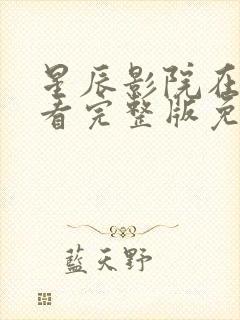 星辰影院在
看完整版免
藍天野